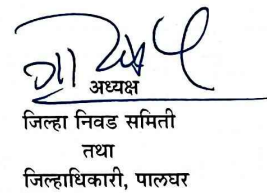 अध्यक्ष
जिल्हा निवड समिती
तथा
जिल्हाधिकारी, पालघर